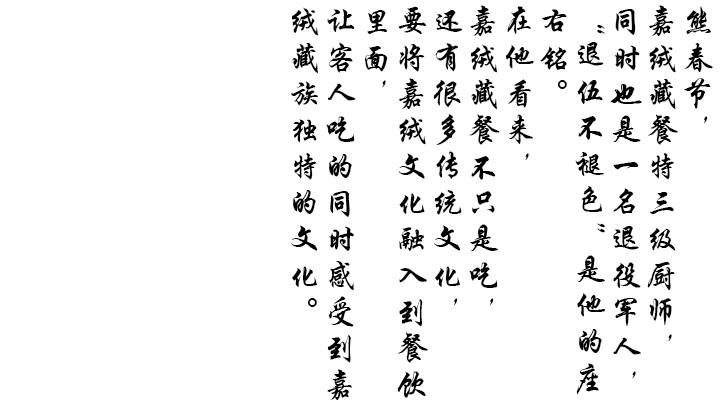 熊春节，
嘉绒藏餐特三级厨师，
同时也是一名退役军人，
“退伍不褪色”是他的座
右铭。
在他看来，
嘉绒藏餐不只是吃，
还有很多传统文化，
要将嘉绒文化融入到餐饮
里面，
让客人吃的同时感受到嘉
绒藏族独特的文化。